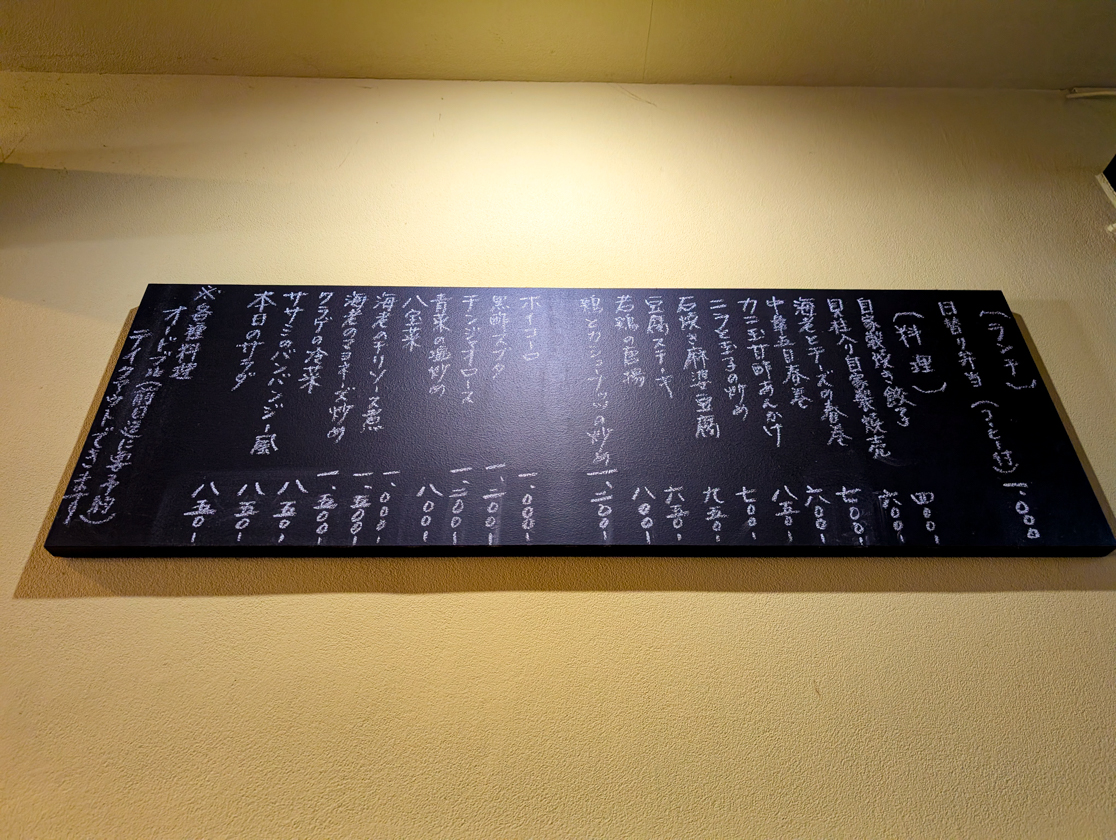 (ランチ)
日替り弁当 (スープ付) 一、000
(料理)
自家製焼き餃子 四00-
貝柱入り自家製焼売 六00-
海老とチーズの春巻 七00-
中華五目春巻 六00-
カニ玉甘酢あんかけ 八五0-
ニラと玉子の炒め 七00-
石焼き麻婆豆腐 九五0-
豆腐ステーキ 六五0-
若鶏の唐揚 八00-
鶏とカシューナッツの炒め 一、二00-
ホイコーロ 一、000-
黒酢スブタ 一、二00-
チンジャオロース 一、二00-
青菜の塩炒め 八00-
八宝菜 一、000-
海老のチリソース煮 一、五00-
海老のマヨネーズ炒め 一、五00-
クラゲの冷菜 八五0-
ササミのバンバンジー風 八五0-
本日のサラダ 八五0-
※各種料理
オードブル(前日迄に要予約)
テイクアウトできます。